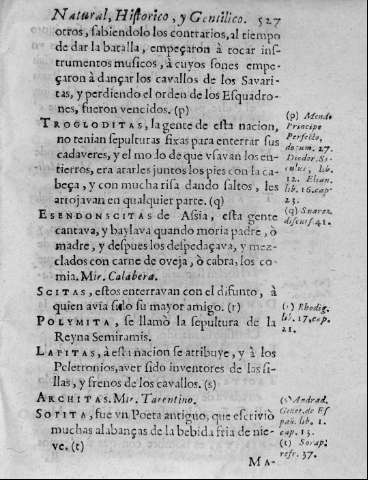 Natural, Historico, y Gentilico. 527
otros, sabiendolo los contrarios, al tiempo
de dar la batalla, empeçaron à tocar ins-
trumentos musicos, à cuyos sones empe-
çaron à dançar los cavallos de los Savari-
tas, y perdiendo el orden de los Esquadro-
nes, fueron vencidos. (p)
TROGLODITAS, la gente de esta nacion,
no tenian sepulturas fixas para enterrar sus
cadaveres, y el modo de que vsavan los en-
tierros, era atarles juntos los pies con la ca-
beça, y con mucha risa dando saltos, les
arrojavan en qualquier parte. (q)
ESENDONSCITAS de Assia, esta gente
cantava, y baylava quando moria padre, ò
madre, y despues los despedaçava, y mez-
clados con carne de oveja, ò cabra, los co-
mia. Mir. Calabera.
SCITAS, estos enterravan con el difunto, à
quien avia sido su mayor amigo. (r)
POLYMITA, se llamò la sepultura de la
Reyna Semiramis.
LAPITAS, à esta nacion se atribuye, y à los
Peletronios, aver sido inventores de las si-
llas, y frenos de los cavallos. (s)
ARCHITAS. Mir. Tarentino.
SOPITA, fue vn Poeta antiguo, que escriviò
muchas alabanças de la bebida fria de nie-
ve. (t)
(p) Mendo
Principe
Perfecto,
docum. 27.
Diodor. Si-
culus, lib.
12. Elian.
lib. 16. cap.
23.
(q) Suarez.
discurs. 41.
(r) Rhodig.
lib. 17. cap.
21.
(s) Andrad.
Gener. de Es
pañ. lib. 1.
cap. 13.
(t) Sorap.
refr. 37.
MA-